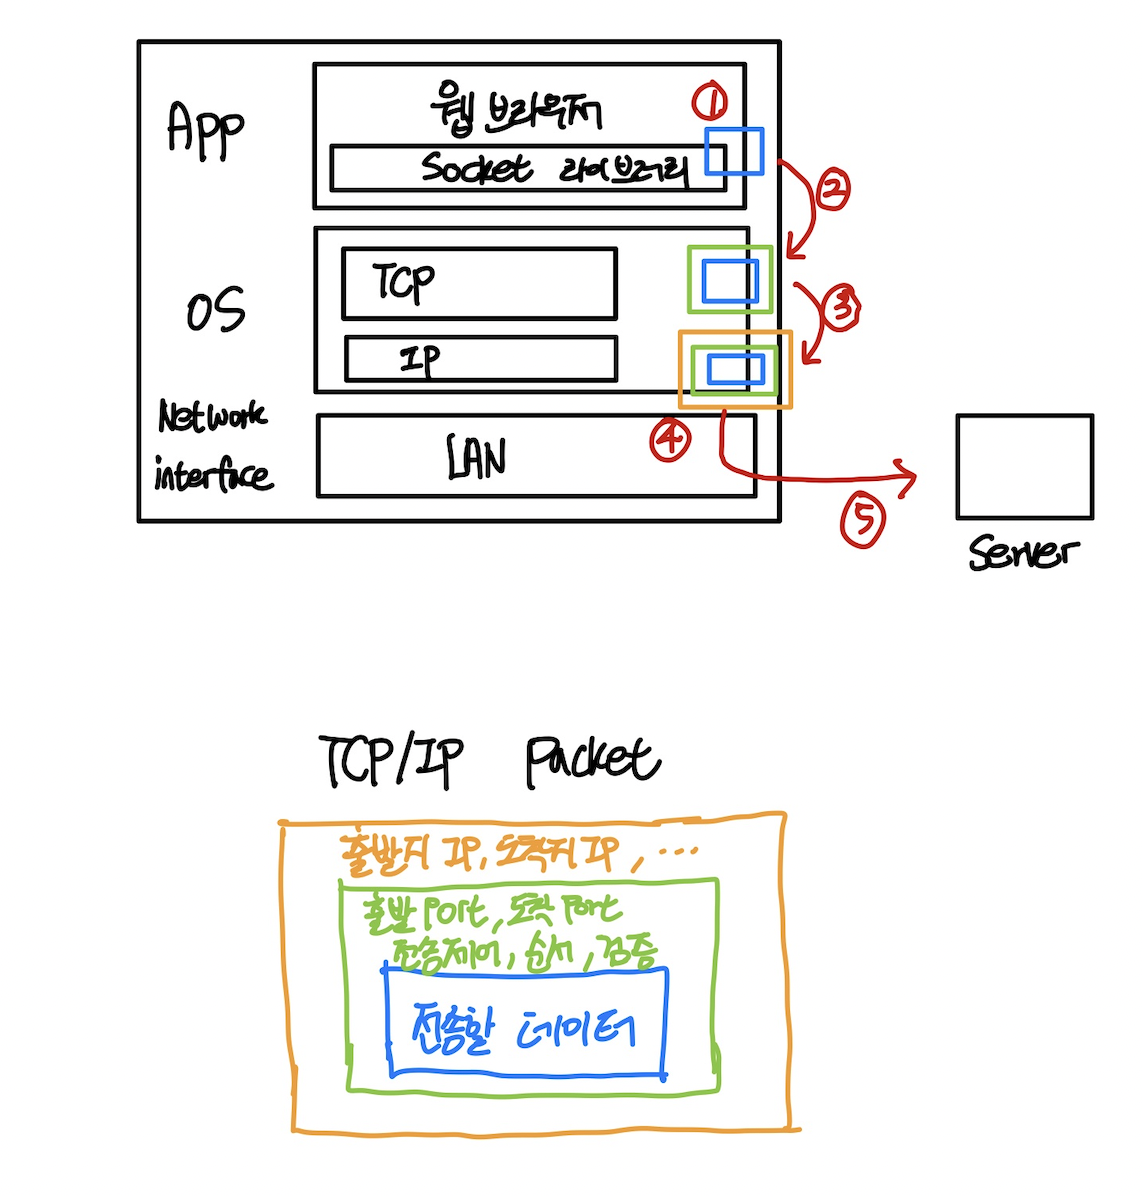 App
웹 브라우저
①
Socket 라이브러리
②
OS
TCP
③
IP
Network
interface
LAN
④
⑤
Server
TCP/IP Packet
출발지 IP, 도착지 IP, ...
출발 Port, 도착 Port
전송제어, 순서, 검증
전송할 데이터